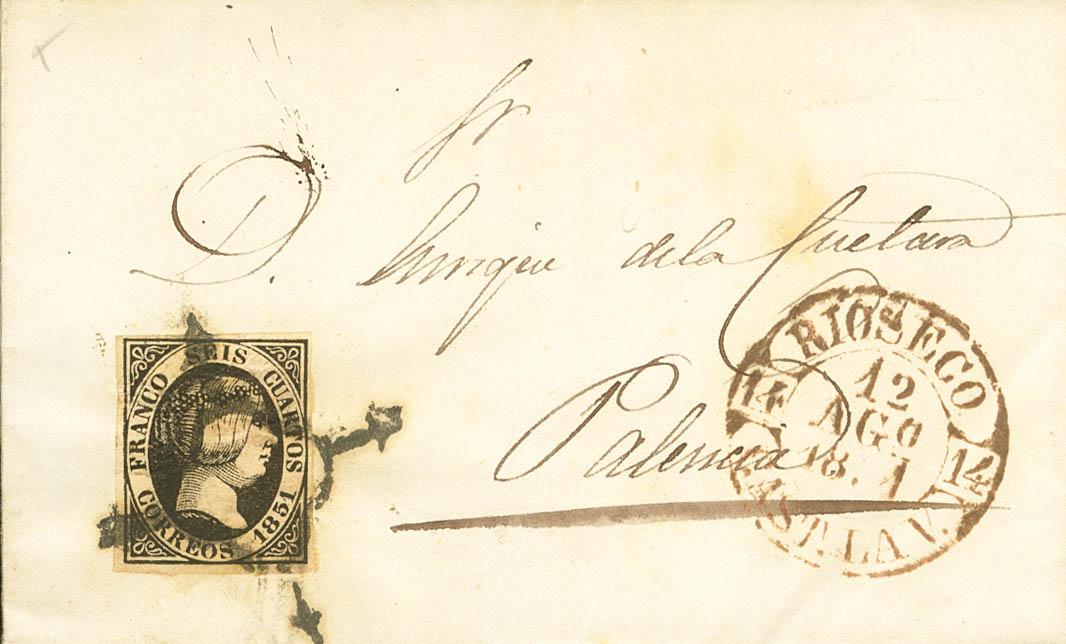 Sr
D. Enrique de la Cuetara
Palencia
FRANCO SEIS CUARTOS
CORREOS 1851
RIOSECO
14 12 AGO 1851 14
CAST. LA V.